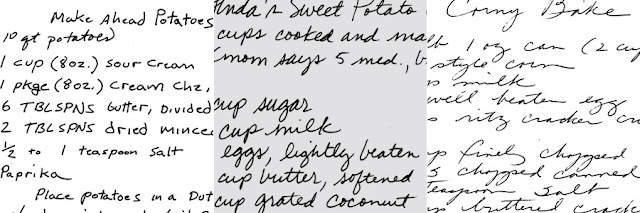 Make Ahead Potatoes
10 qt potatoes
1 cup (8oz.) sour cream
1 pkge (8oz.) cream chz,
6 TBLSPNS butter, divided
2 TBLSPNS dried mince
1/2 to 1 teaspoon salt
Paprika
Place potatoes in a Dut
nda's Sweet Potato
cups cooked and ma
(mom says 5 med., b
cup sugar
cup milk
eggs, lightly beaten
cup butter, softened
cup grated coconut
Corny Bake
1 oz can (2 cup
style corn
milk
well beaten egg
ritz cracker cru
finely chopped
chopped canned
teaspoon salt
buttered crack